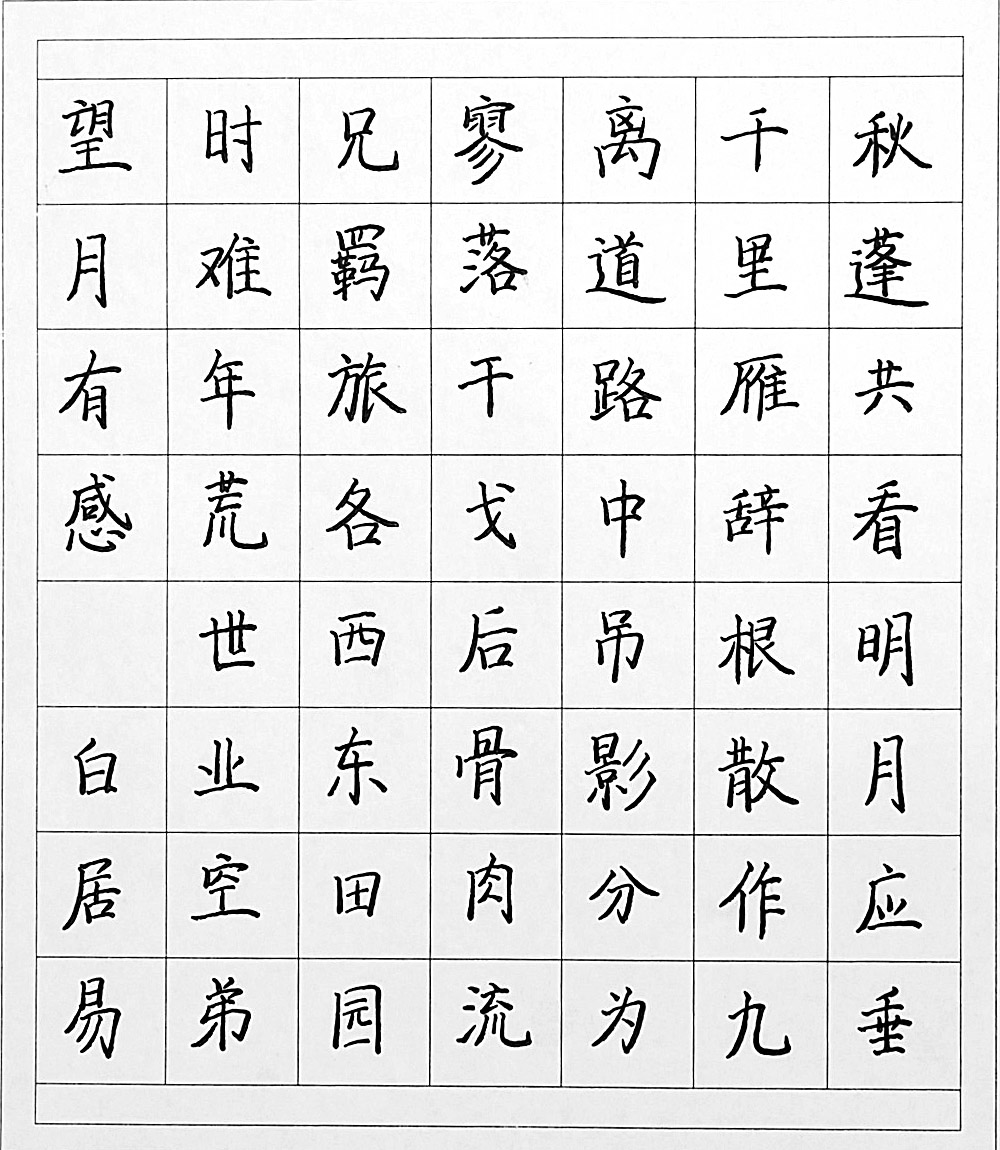 望月有感 白居易
时难年荒世业空弟
兄羁旅各西东田园
寥落干戈后骨肉流
离道路中吊影分为
千里雁辞根散作九
秋蓬共看明月应垂